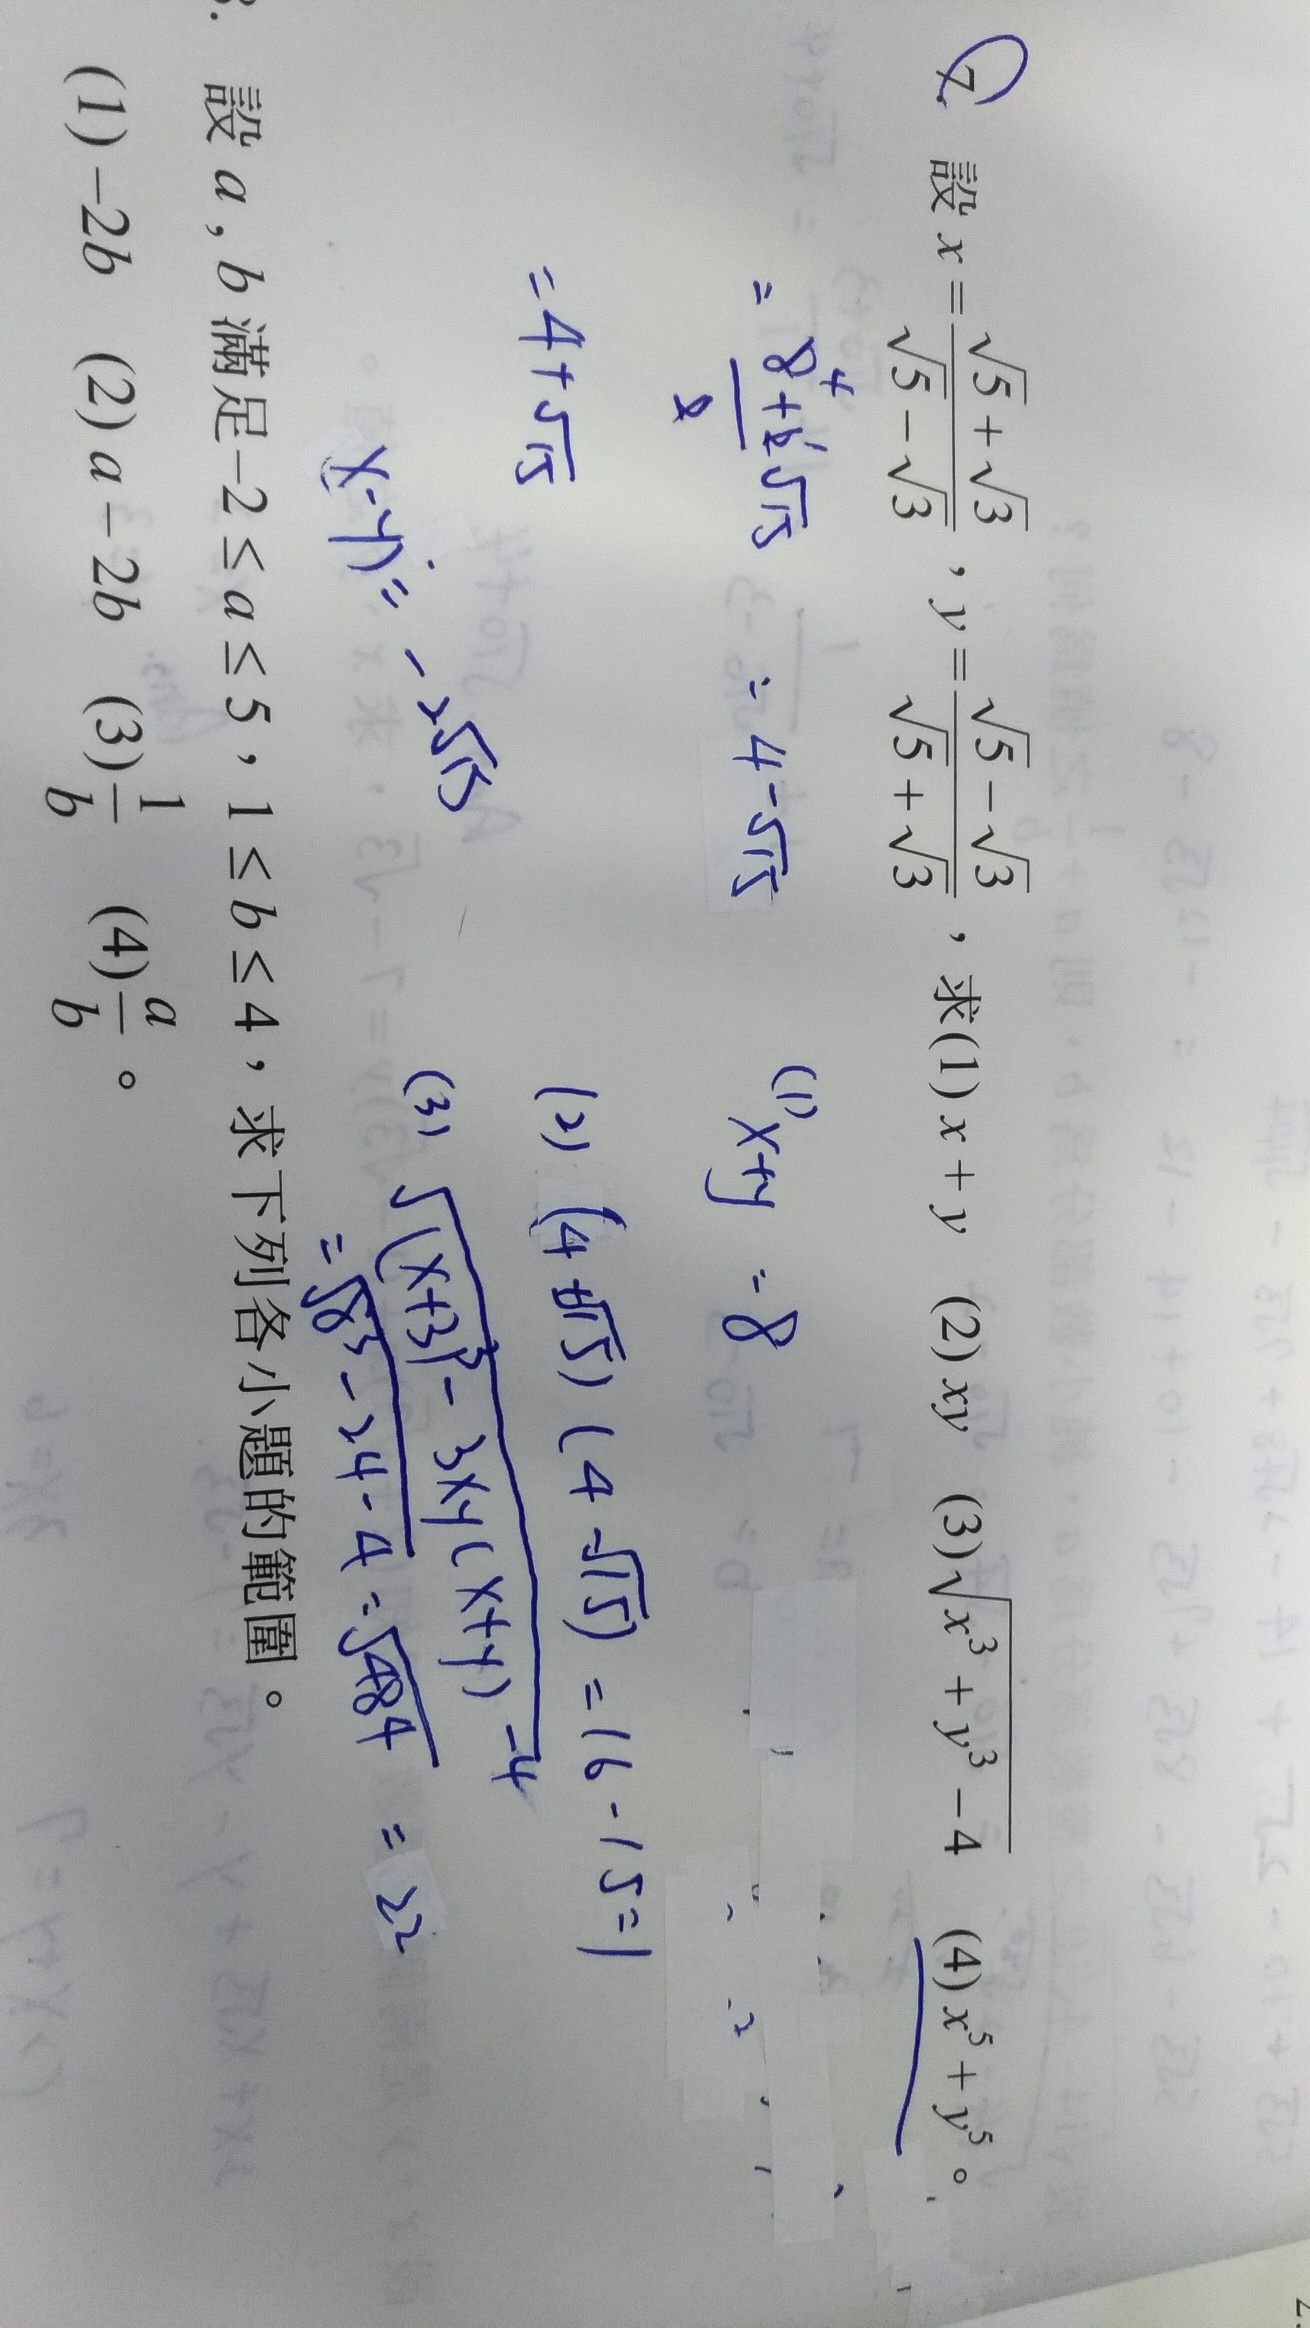 7. 設 x = (√5 + √3)/(√5 − √3)，y = (√5 − √3)/(√5 + √3)，求(1) x + y (2) xy (3) √(x³ + y³ − 4) (4) x⁵ + y⁵。
= (8 + 2√15)/2 = 4 - √15
4
= 4 + √15
x - y = - 2√15
(1) x+y = 8
(2) (4 + √15) (4 - √15) = 16 - 15 = 1
(3) √((x+3)³ - 3xy(x+y) - 4)
= √(8³ - 24 - 4) = √484 = 22
設 a , b 滿足 −2 ≤ a ≤ 5，1 ≤ b ≤ 4，求下列各小題的範圍。
(1) −2b (2) a − 2b (3) 1/b (4) a/b。
2.